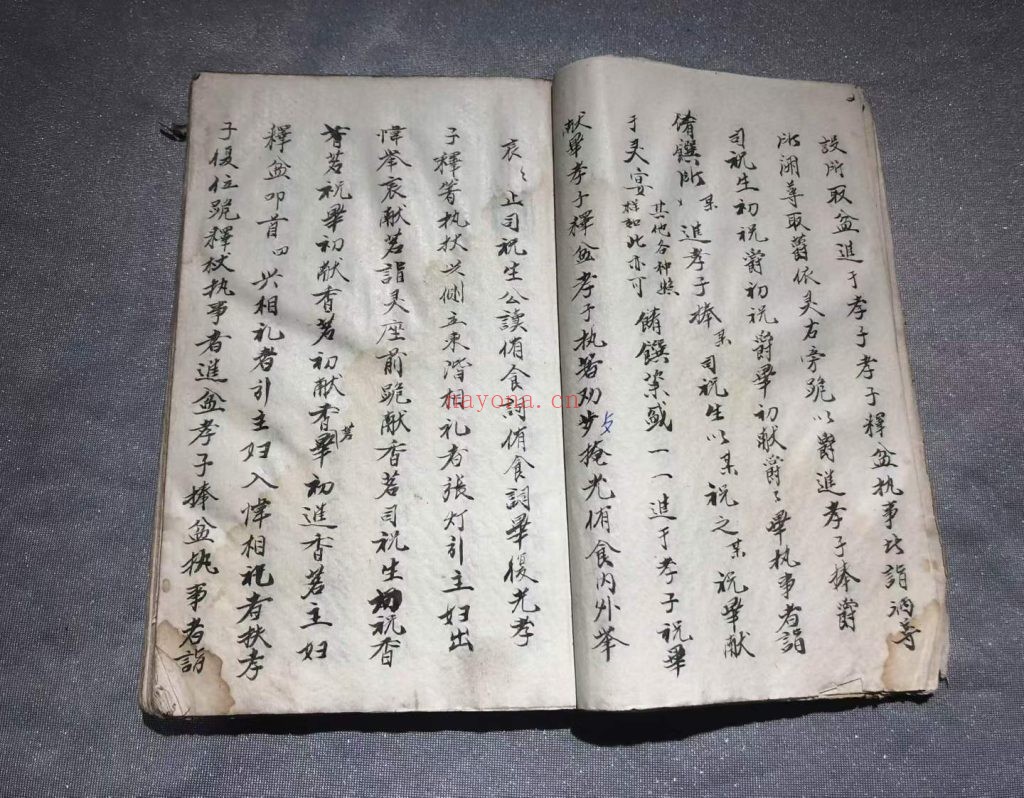 設所取盆進于孝子孝子釋盆执事者詣酒尊
所酒尊取爵依灵右旁跪以爵進孝子捧爵
司祝生初祝爵初祝爵畢初献爵〻畢执事者詣
司祝生以某祝之某祝畢献
饌所〻某進孝子捧某
其他各种照
样如此亦可
于灵宴
餚饌菜 一一進于孝子祝畢
献畢孝子釋盆孝子执箸 步掩光侑食内外举
哀〻止司祝生公讀侑食詞侑食詞畢復光孝
子釋箸执杖兴侧立東階相礼者張灯引主妇出
幃举哀献茗詣灵座前跪献香茗司祝生初祝香
茗祝畢初献香茗初献香茗畢初進香茗主妇
釋盆叩首四兴相礼者引主妇入幃相礼者扶孝
子復位跪釋杖执事者進盆孝子捧盆执事者詣
nayona.cn